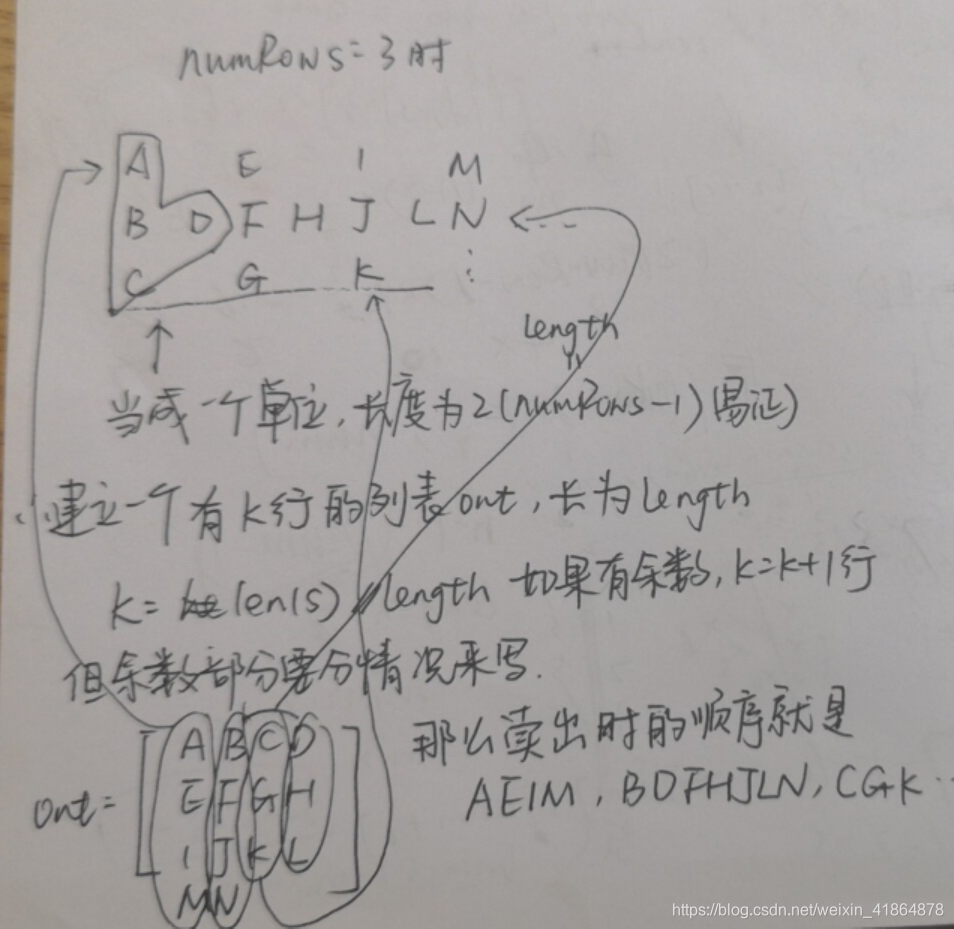 numRows=3时
A E I M
B D F H J L N
C G K ⋮
length
当成一个单位,长度为2(numRows-1)(易证)
建立一个有k行的列表ont,长为length
k= len(s)//length 如果有余数,k=k+1行
但余数部分要分情况来写.
那么读出时的顺序就是
AEIM, BDFHJLN, CGK…
ont=
A B C D
E F G H
I J K L
M N
https://blog.csdn.net/weixin_41864878